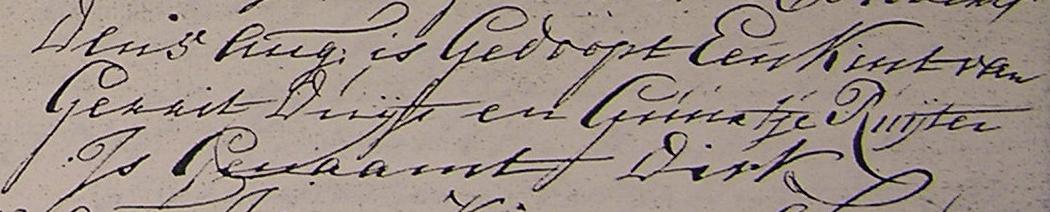 Den 5 Aug: is Gedoopt Een Kint van
Gerrit Duijts en Grietje Ruijter
Is Genaamt Dirk